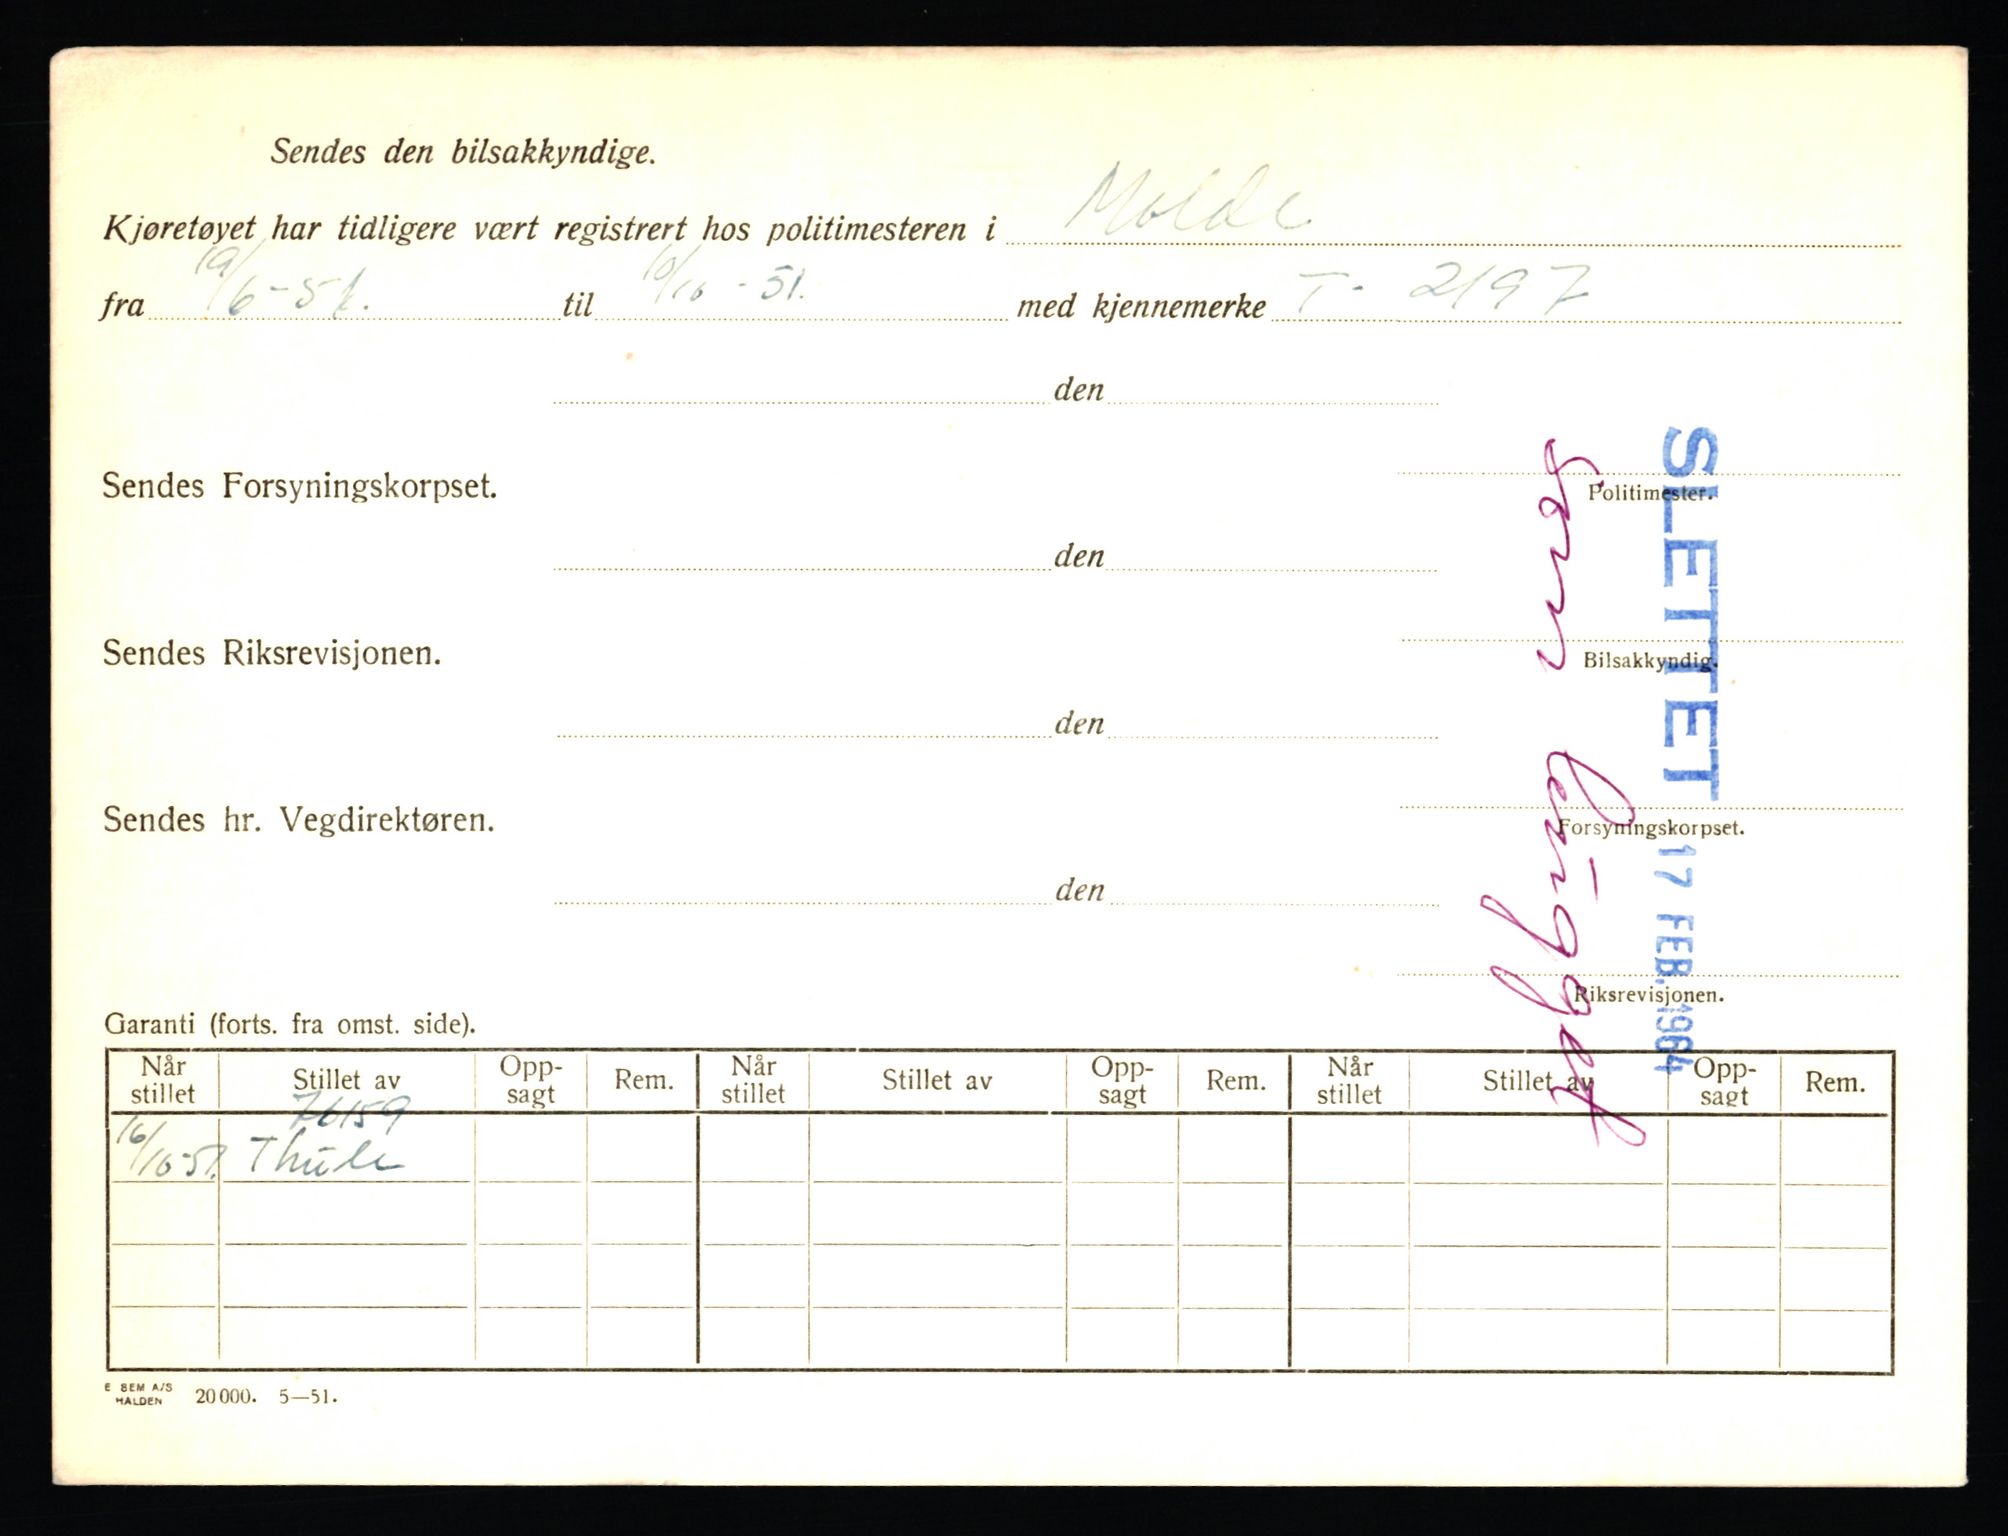 Sendes den bilsakkyndige.
Kjøretøyet har tidligere vært registrert hos politimesteren i Molde
fra 19/6-51. til 10/10-51. med kjennemerke T- 2197
den
Politimester.
Sendes Forsyningskorpset.
den
Bilsakkyndig.
Sendes Riksrevisjonen.
den
Forsyningskorpset.
Sendes hr. Vegdirektøren.
den
Riksrevisjonen.
SLETTET 17 FEB. 1964
som
Garanti (forts. fra omst. side).
Når stillet Stillet av Opp-sagt Rem. Når stillet Stillet av Opp-sagt Rem. Når stillet Stillet av Opp-sagt Rem.
76159
16/10-51. Thule
E SEM A/S
HALDEN 20000. 5—51.